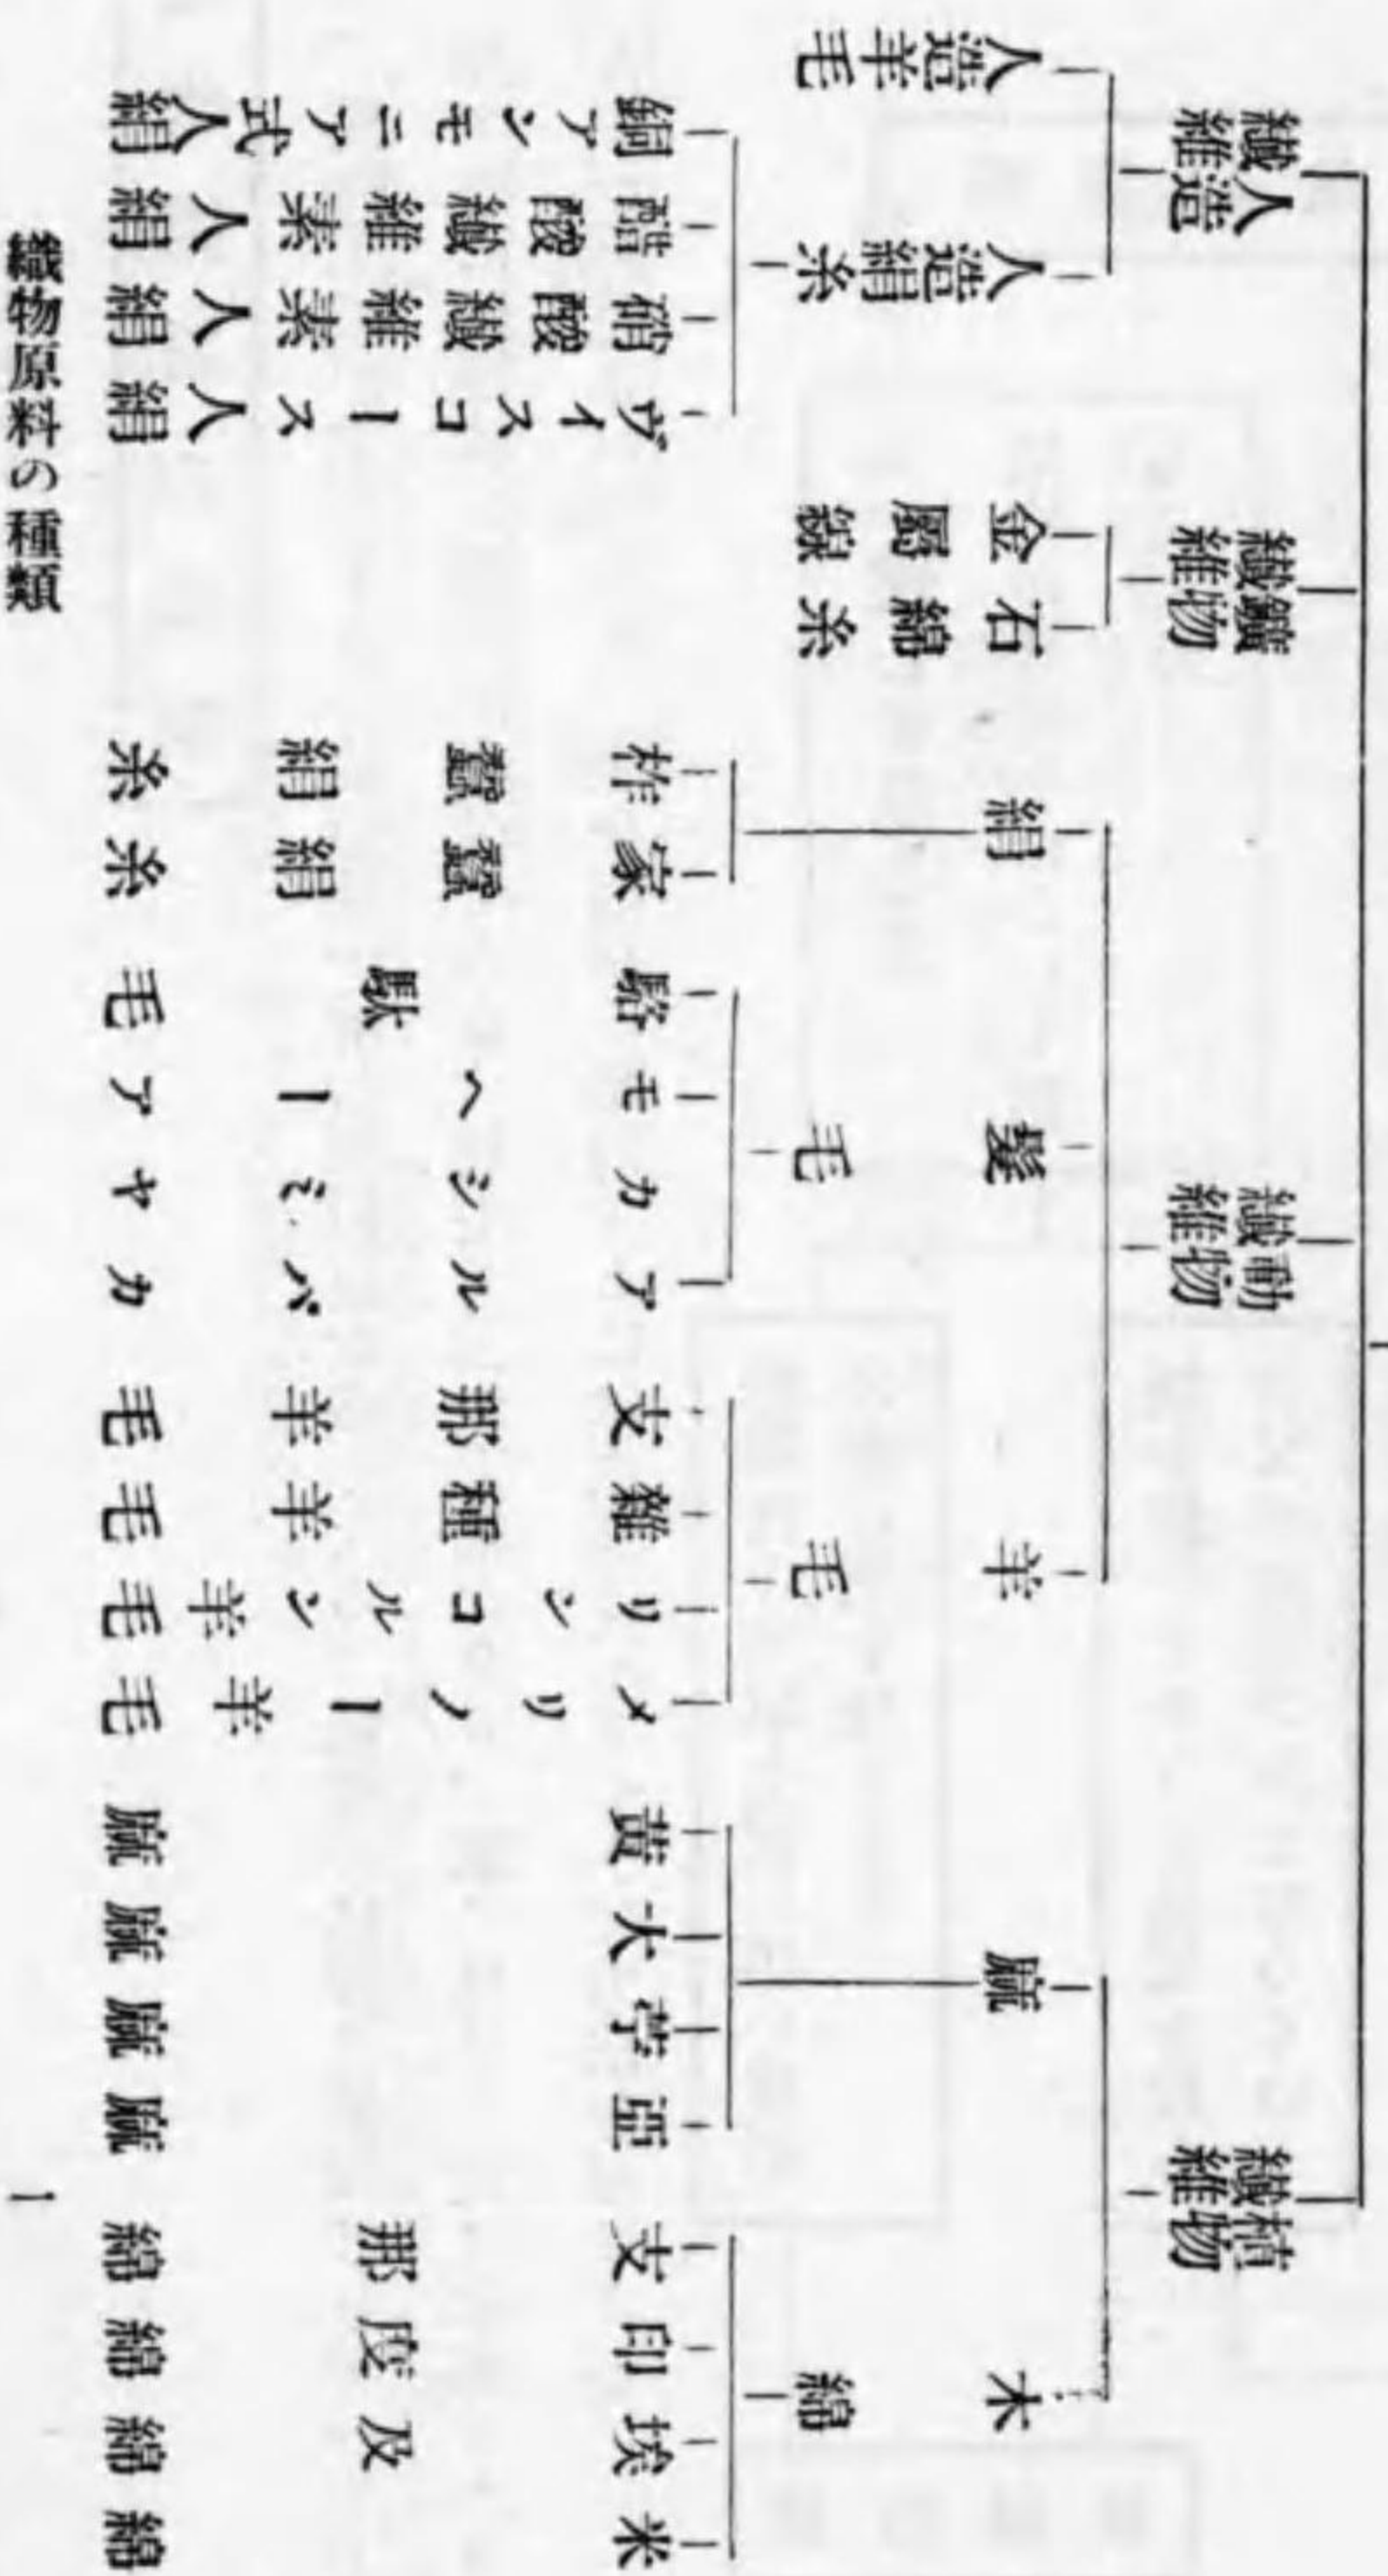 植物
纖維
動物
纖維
鑛物
纖維
人造
纖維
木綿
麻
羊毛
髮毛
絹
石綿糸
金屬線
人造絹糸
人造羊毛
米綿
埃及綿
印度綿
支那綿
亞麻
苧麻
大麻
黄麻
メリノー羊毛
リンコルン羊毛
雜種羊毛
支那羊毛
アルパカ
カシミヤ
モヘーア
駱駄毛
家蠶絹糸
柞蠶絹糸
ヴイスコース人絹
硝酸纖維素人絹
醋酸纖維素人絹
銅アンモニア式人絹
織物原料の種類
一